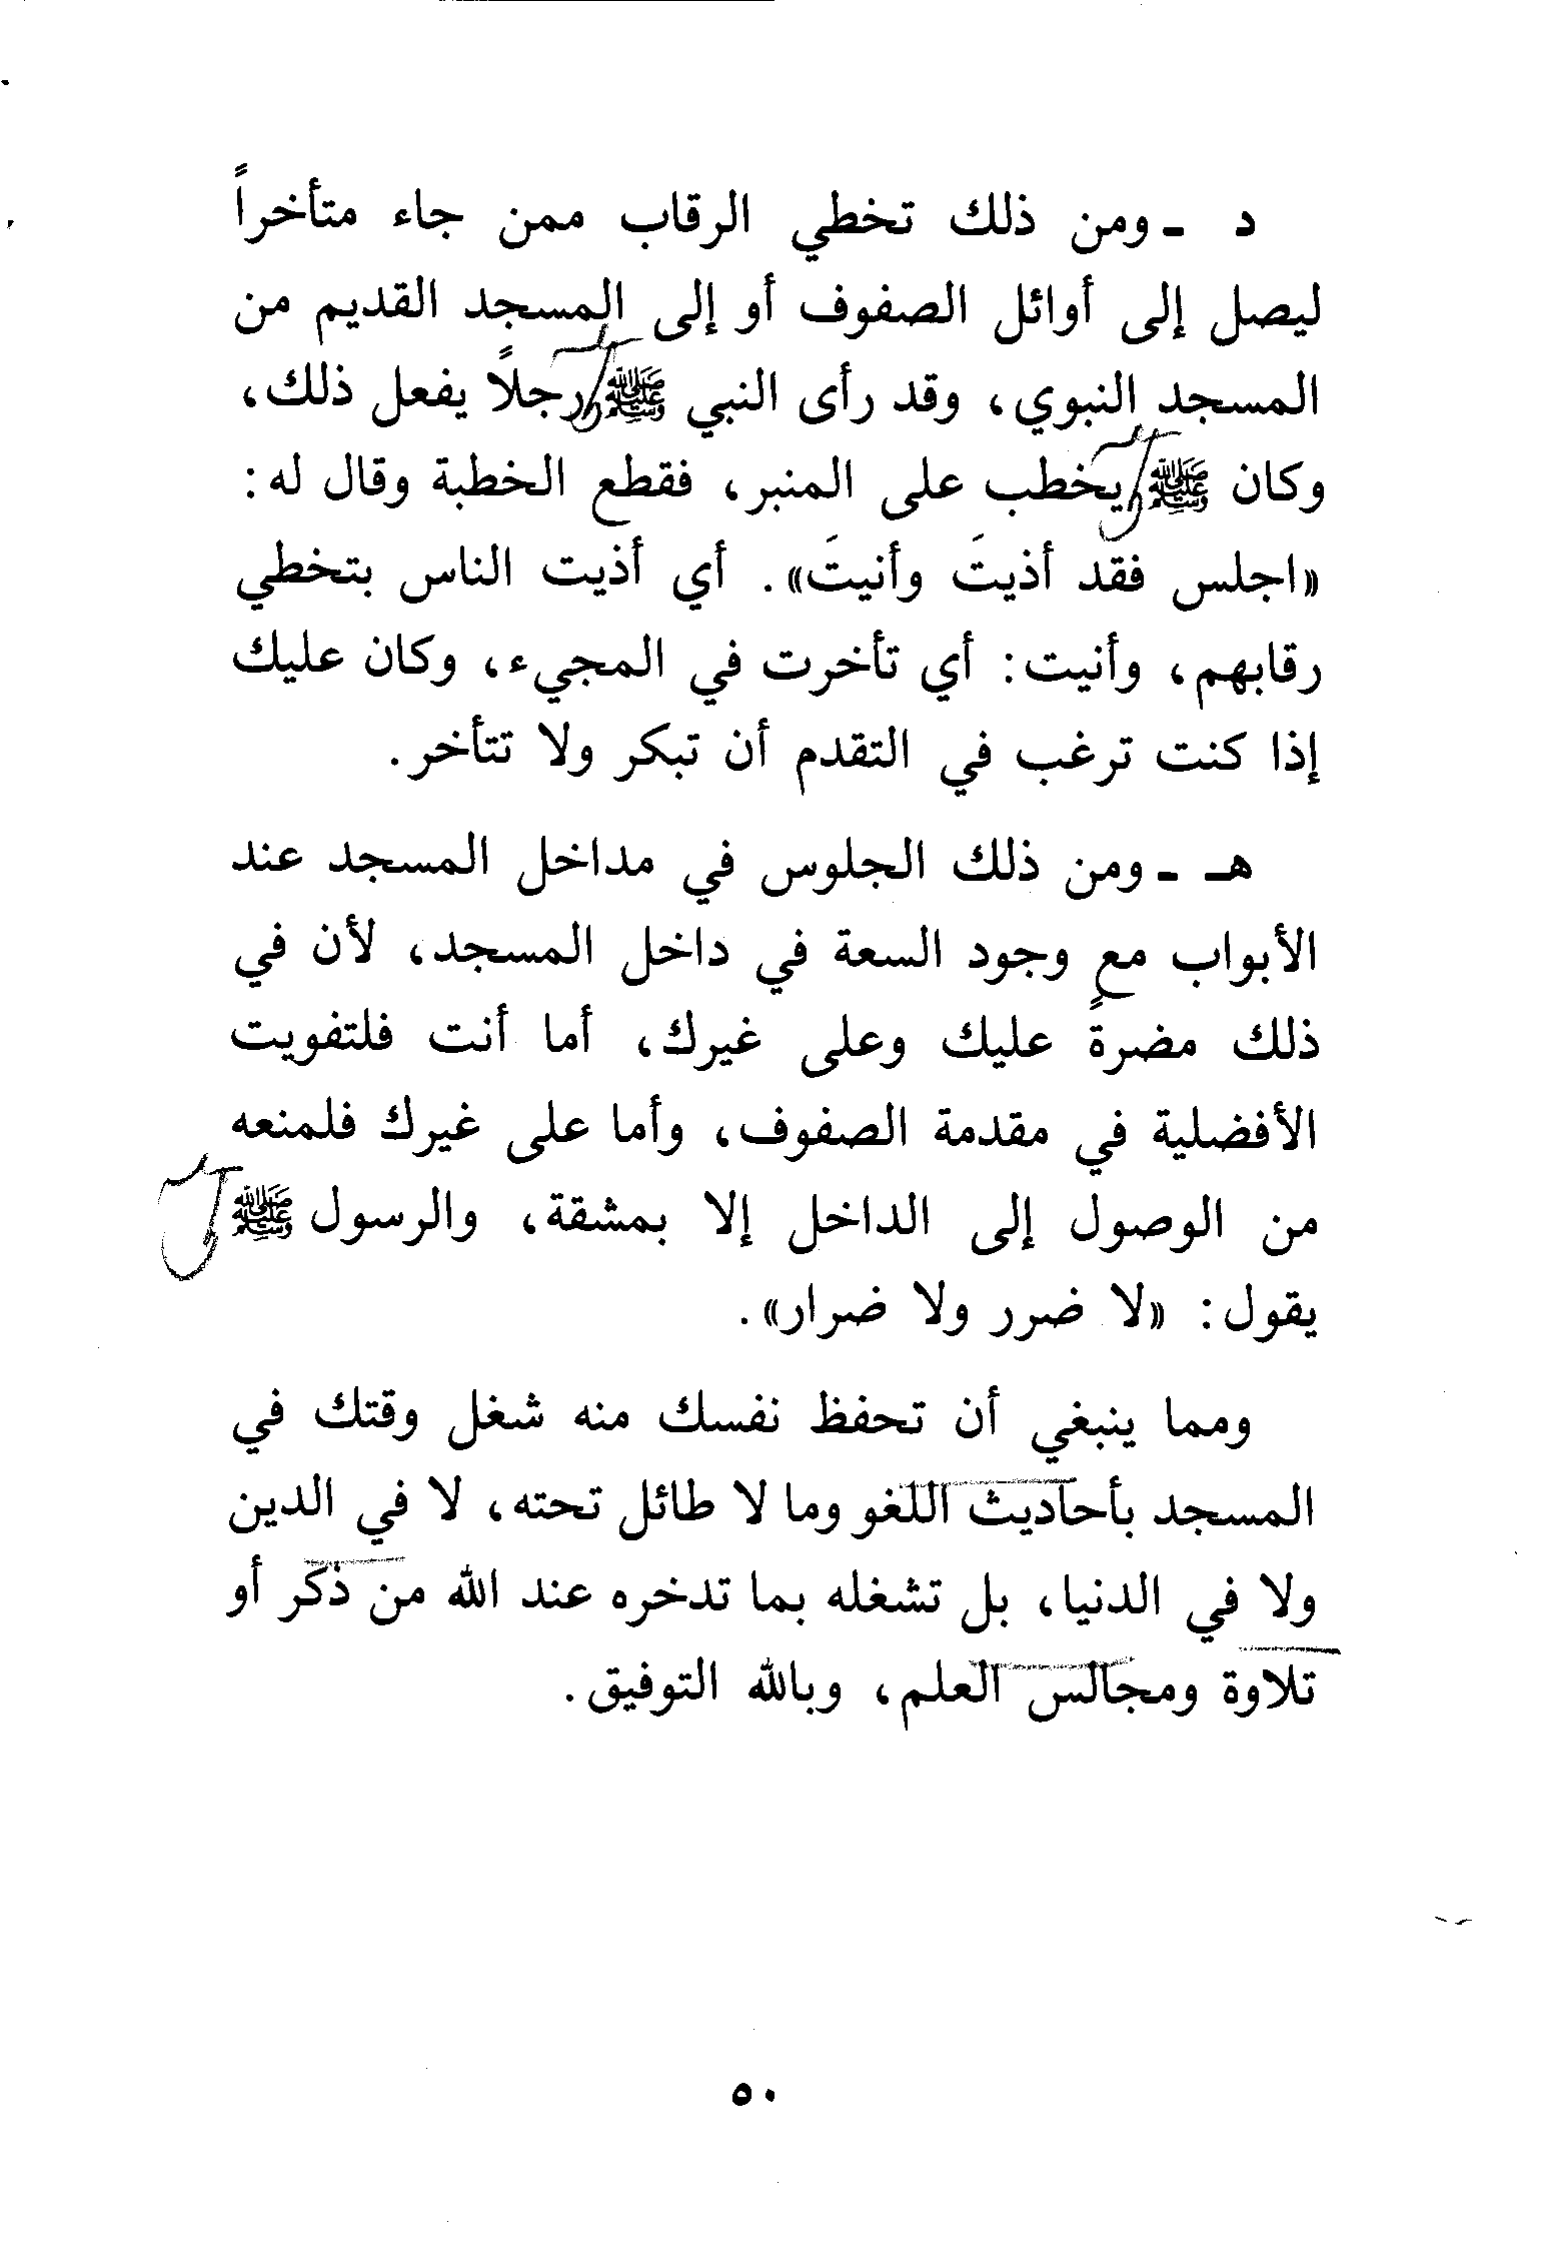 د ـ ومن ذلك تخطي الرقاب ممن جاء متأخراً
ليصل إلى أوائل الصفوف أو إلى المسجد القديم من
المسجد النبوي، وقد رأى النبي ﷺ رجلاً يفعل ذلك،
وكان ﷺ يخطب على المنبر، فقطع الخطبة وقال له:
«اجلس فقد أذيتَ وأنيتَ». أي أذيت الناس بتخطي
رقابهم، وأنيت: أي تأخرت في المجيء، وكان عليك
إذا كنت ترغب في التقدم أن تبكر ولا تتأخر.
هـ ـ ومن ذلك الجلوس في مداخل المسجد عند
الأبواب مع وجود السعة في داخل المسجد، لأن في
ذلك مضرةً عليك وعلى غيرك، أما أنت فلتفويت
الأفضلية في مقدمة الصفوف، وأما على غيرك فلمنعه
من الوصول إلى الداخل إلا بمشقة، والرسول ﷺ
يقول: «لا ضرر ولا ضرار».
ومما ينبغي أن تحفظ نفسك منه شغل وقتك في
المسجد بأحاديث اللغو وما لا طائل تحته، لا في الدين
ولا في الدنيا، بل تشغله بما تدخره عند الله من ذكر أو
تلاوة ومجالس العلم، وبالله التوفيق.
٥٠